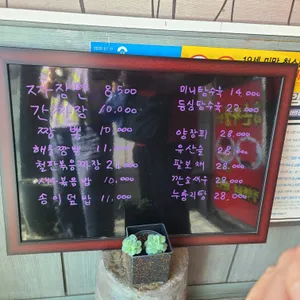 짜장면 8,500
간짜장 10,000
짬뽕 10,000
해물짬뽕 11,000
쟁반볶음짜장
새우볶음밥 10,000
송이덮밥 11,000
미니탕수육 14,000
등심탕수육 22,000
양장피 28,000
유산슬 28,000
팔보채 28,000
깐쇼새우 28,000
누룽지탕 28,000
19세 미만